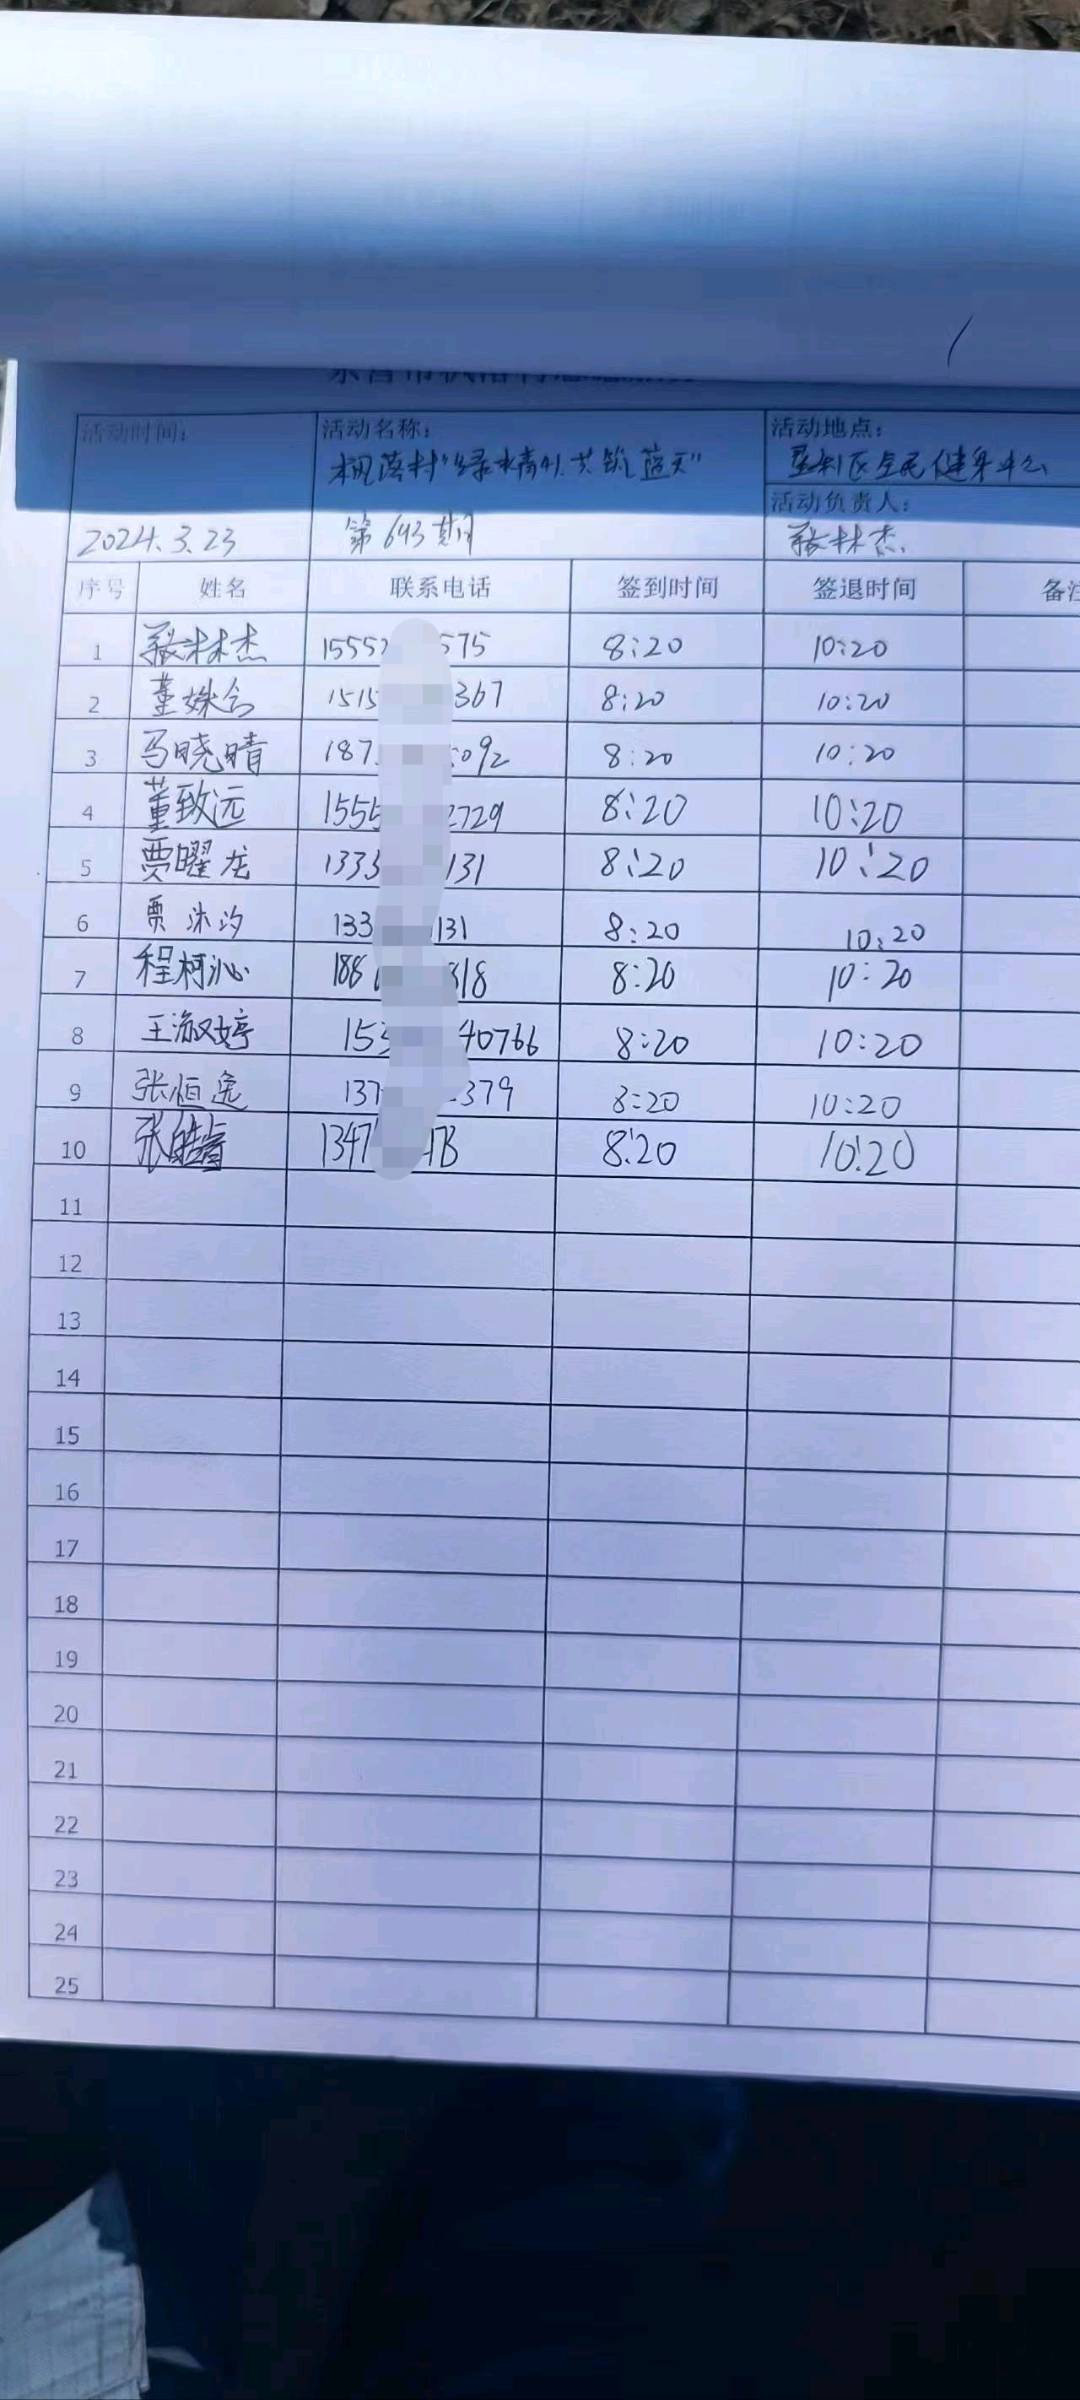 活动时间：
2024.3.23
活动名称：
枫落村"绿水青山共筑蓝天"
第693期
活动地点：
垦利区全民健身中心
活动负责人：
张林杰
序号 姓名 联系电话 签到时间 签退时间 备注
1 张林杰 15552 575 8:20 10:20
2 董姝含 1515 367 8:20 10:20
3 马晓晴 187 092 8:20 10:20
4 董致远 1555 2729 8:20 10:20
5 贾曜龙 1333 131 8:20 10:20
6 贾沐汐 133 131 8:20 10:20
7 程柯沁 188 318 8:20 10:20
8 王淑婷 153 40766 8:20 10:20
9 张恒逢 137 379 8:20 10:20
10 张皓睿 1347 8:20 10:20
11
12
13
14
15
16
17
18
19
20
21
22
23
24
25